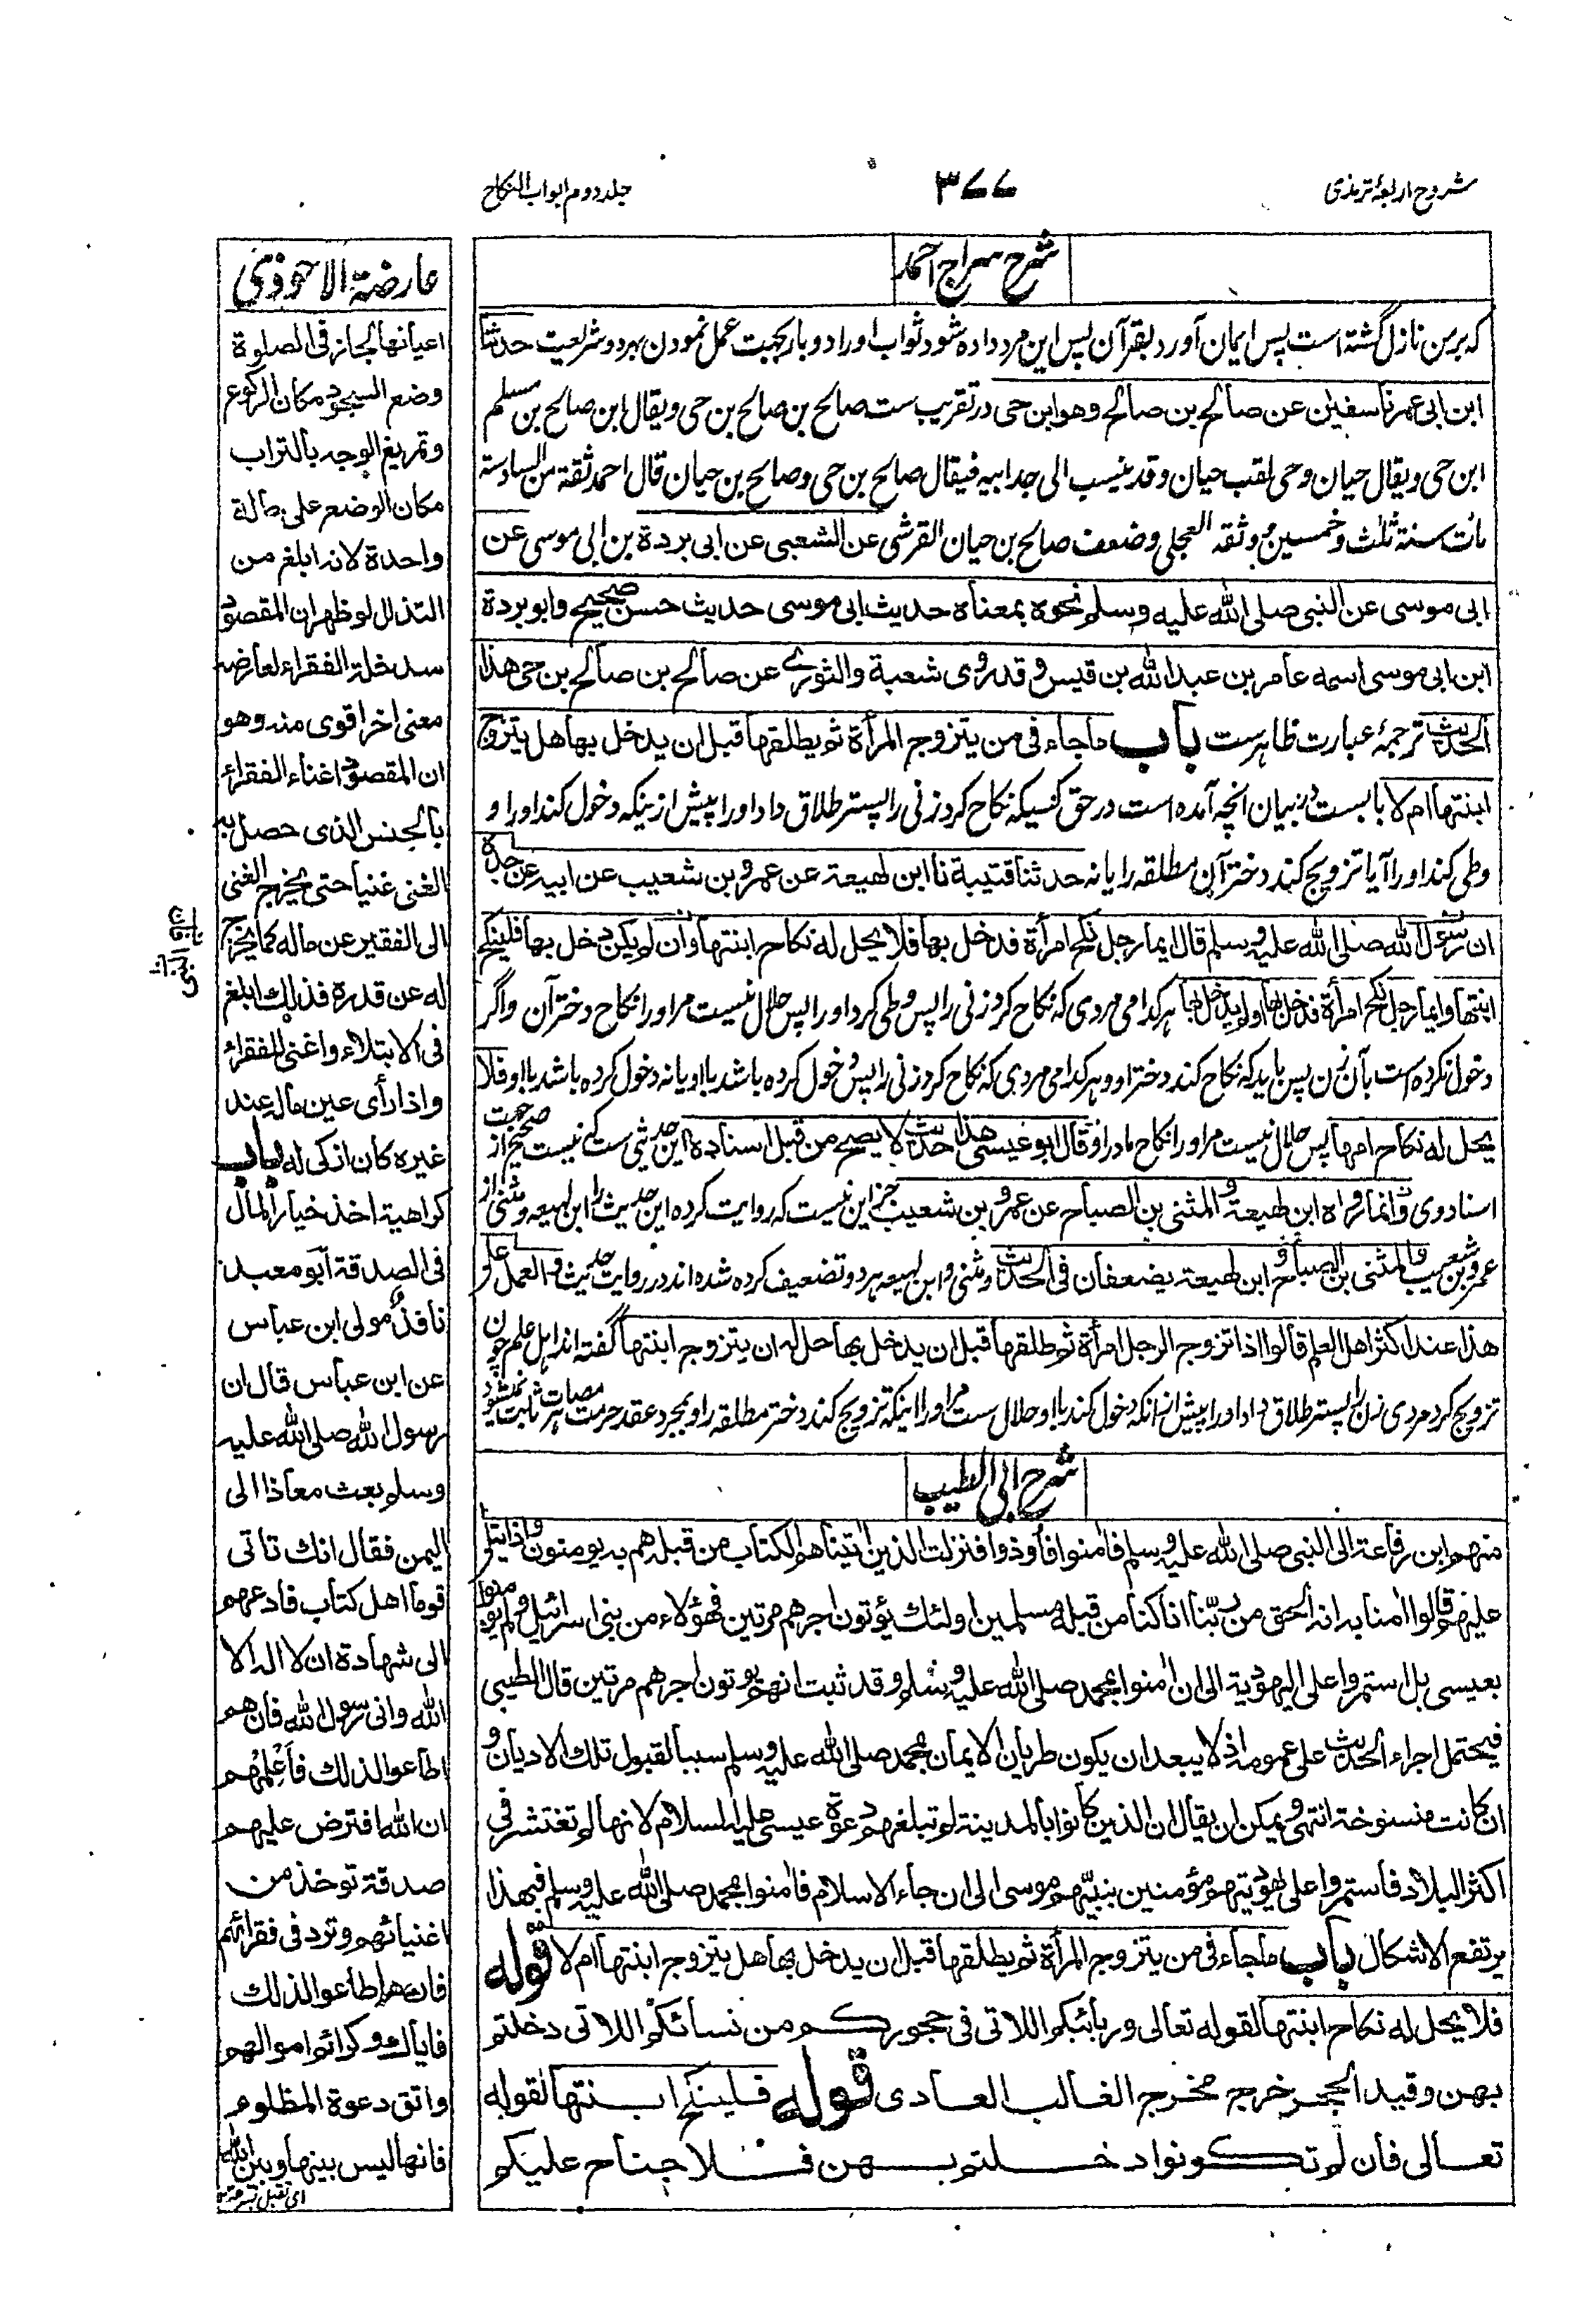 شروح اربعۂ ترمذی
۳۷۷
جلد دوم ابواب النکاح
شرح سراج احمد
که بر من نازل گشته است پس ایمان آورد بقرآن پس این مرد داده شود ثواب او را دو بار بجهت عمل نمودن بهر دو شریعت حدثنا
ابن ابی عمر نا سفین عن صالح بن صالح وهو ابن حی در تقریب ست صالح بن صالح بن حی ویقال ابن صالح بن مسلم
ابن حی ویقال حیان وحی لقب حیان وقد ینسب الی جد ابیه فیقال صالح بن حی وصالح بن حیان قال احمد ثقة من السادسة
مات سنة ثلث وخمسین وثقه العجلی وضعف صالح بن حیان القرشی عن الشعبی عن ابی بردة بن ابی موسی عن
ابی موسی عن النبی صلی الله علیه وسلم نحوه بمعناه حدیث ابی موسی حدیث حسن صحیح وابو بردة
ابن ابی موسی اسمه عامر بن عبد الله بن قیس وقد روی شعبة والثوری عن صالح بن صالح بن حی هذا
الحدیث ترجمۂ عبارت ظاهر ست باب ما جاء فی من یتزوج المرأة ثم یطلقها قبل ان یدخل بها هل یتزوج
ابنتها ام لا بابست در بیان انچه آمده است در حق کسیکه نکاح کرد زنی را پستر طلاق داد او را پیش ازینکه دخول کند او را و
وطی کند او را آیا تزویج کند دختر آن مطلقه را یا نه حدثنا قتیبة نا ابن لهیعة عن عمرو بن شعیب عن ابیه عن جده
ان رسول الله صلی الله علیه وسلم قال ایما رجل نکح امرأة فدخل بها فلا یحل له نکاح ابنتها وان لم یکن دخل بها فلینکح
ابنتها وایما رجل نکح امرأة فدخل بها اولم یدخل بها هر کدامی مردی که نکاح کرد زنی را پس وطی کرد او را پس حلال نیست مر او را نکاح دختر آن واگر
دخول نکرده است بآن زن پس باید که نکاح کند دختر او و هر کدامی مردی که نکاح کرد زنی را پس دخول کرده باشد با او یا نه دخول کرده باشد با او فلا
یحل له نکاح امها پس حلال نیست مر او را نکاح مادر او قال ابو عیسی هذا حدیث لا یصح من قبل اسناده این حدیثی ست که نیست صحیح از جهت
اسناد وی وانما رواه ابن لهیعة والمثنی بن الصباح عن عمرو بن شعیب جز این نیست که روایت کرده این حدیث را ابن لهیعه ومثنی از
عمرو بن شعیب والمثنی بن الصباح وابن لهیعة یضعفان فی الحدیث ومثنی وابن لهیعه هر دو تضعیف کرده شده اند در روایت حدیث والعمل علی
هذا عند اکثر اهل العلم قالوا اذا تزوج الرجل امرأة ثم طلقها قبل ان یدخل بها حل له ان یتزوج ابنتها گفته اند اهل علم چون
تزویج کرد مردی زن را پستر طلاق داد او را پیش از انکه دخول کند با او حلال ست مر او را اینکه تزویج کند دختر مطلقه را و بمجرد عقد حرمت مصاهرت ثابت نمیشود
شرح ابی الطیب
منهم ابن رفاعة الی النبی صلی الله علیه وسلم فآمنوا فأوذوا فنزلت الذین آتیناهم الکتاب من قبله هم به یومنون واذا یتلی
علیهم قالوا آمنا به انه الحق من ربنا انا کنا من قبله مسلمین اولئك یؤتون اجرهم مرتین فهؤلاء من بنی اسرائیل ولم یومنوا
بعیسی بل استمروا علی الیهودیة الی ان آمنوا بمحمد صلی الله علیه وسلم وقد ثبت انهم یوتون اجرهم مرتین قال الطیبی
فیحتمل اجراء الحدیث علی عمومه اذ لا یبعد ان یکون طریان الایمان بمحمد صلی الله علیه وسلم سببا لقبول تلك الادیان و
ان کانت منسوخة انتهی ویمکن ان یقال ان الذین کانوا بالمدینة لم تبلغهم دعوة عیسی علیه السلام لانها لم تنتشر فی
اکثر البلاد فاستمروا علی یهودیتهم مؤمنین بنبیهم موسی الی ان جاء الاسلام فآمنوا بمحمد صلی الله علیه وسلم فبهذا
یرتفع الاشکال باب ما جاء فی من یتزوج المرأة ثم یطلقها قبل ان یدخل بها هل یتزوج ابنتها ام لا قوله
فلا یحل له نکاح ابنتها لقوله تعالی وربائبکم اللاتی فی حجورکم من نسائکم اللاتی دخلتم
بهن وقید الحجر خرج مخرج الغالب العادی قوله فلینکح ابنتها لقوله
تعالی فان لم تکونوا دخلتم بهن فلا جناح علیکم
عارضة الاحوذی
اعیانها لجاز فی الصلوة
وضع السجود مکان الرکوع
وتمریغ الوجه بالتراب
مکان الوضع علی حالة
واحدة لانه ابلغ من
التذلل لو ظهر ان المقصود
سد خلة الفقراء لعارضه
معنی اخر اقوی منه وهو
ان المقصود اغناء الفقراء
بالجنس الذی حصل به
الغنی غنیا حتی یخرج الغنی
الی الفقیر عن ماله کما یخرج
له عن قدرة فذلك ابلغ
فی الابتلاء واغنی للفقراء
واذا رأی عین ماله عند
غیره کان ازکی له باب
کراهیة اخذ خیار المال
فی الصدقة ابو معبد
نافذ مولی ابن عباس
عن ابن عباس قال ان
رسول الله صلی الله علیه
وسلم بعث معاذا الی
الیمن فقال انك تاتی
قوما اهل کتاب فادعهم
الی شهادة ان لا اله الا
الله وانی رسول الله فان هم
اطاعوا لذلك فأعلمهم
ان الله افترض علیهم
صدقة توخذ من
اغنیائهم وترد فی فقرائهم
فان هم اطاعوا لذلك
فایاك وکرائم اموالهم
واتق دعوة المظلوم
فانها لیس بینها وبین الله